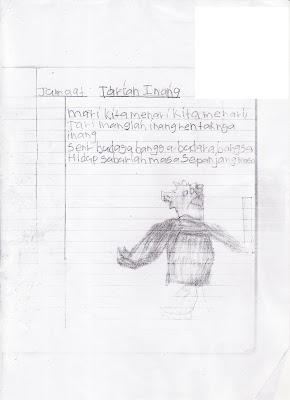 Jumaat: Tarian Inang
mari kita menari kita menari
Tari inanglah inang rentaknya
inang
seni budaya bangsa budaya bangsa
Hidup suburlah masa sepanjang masa